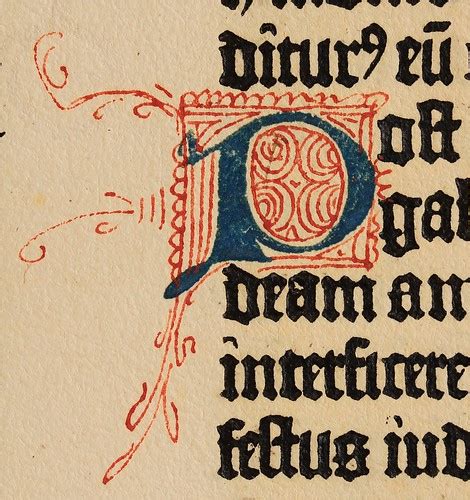 dītur⁹ eū
Poſt
gal
deam am
interficere
feſtus iud